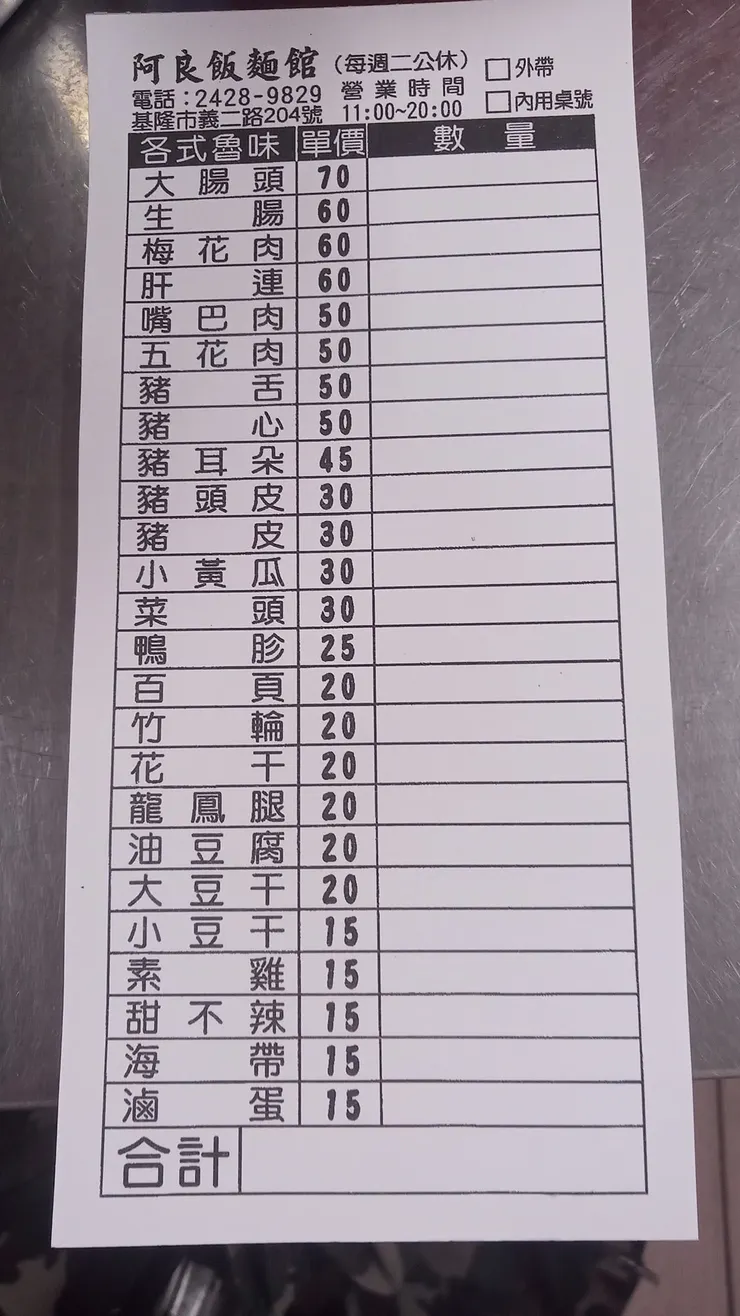 阿良飯麵館 (每週二公休) □外帶
電話:2428-9829 營業時間
基隆市義二路204號 11:00~20:00 □內用桌號
各式魯味 單價 數量
大腸頭 70
生腸 60
梅花肉 60
肝連 60
嘴巴肉 50
五花肉 50
豬舌 50
豬心 50
豬耳朵 45
豬頭皮 30
豬皮 30
小黃瓜 30
菜頭 30
鴨胗 25
百頁 20
竹輪 20
花干 20
龍鳳腿 20
油豆腐 20
大豆干 20
小豆干 15
素雞 15
甜不辣 15
海帶 15
滷蛋 15
合計